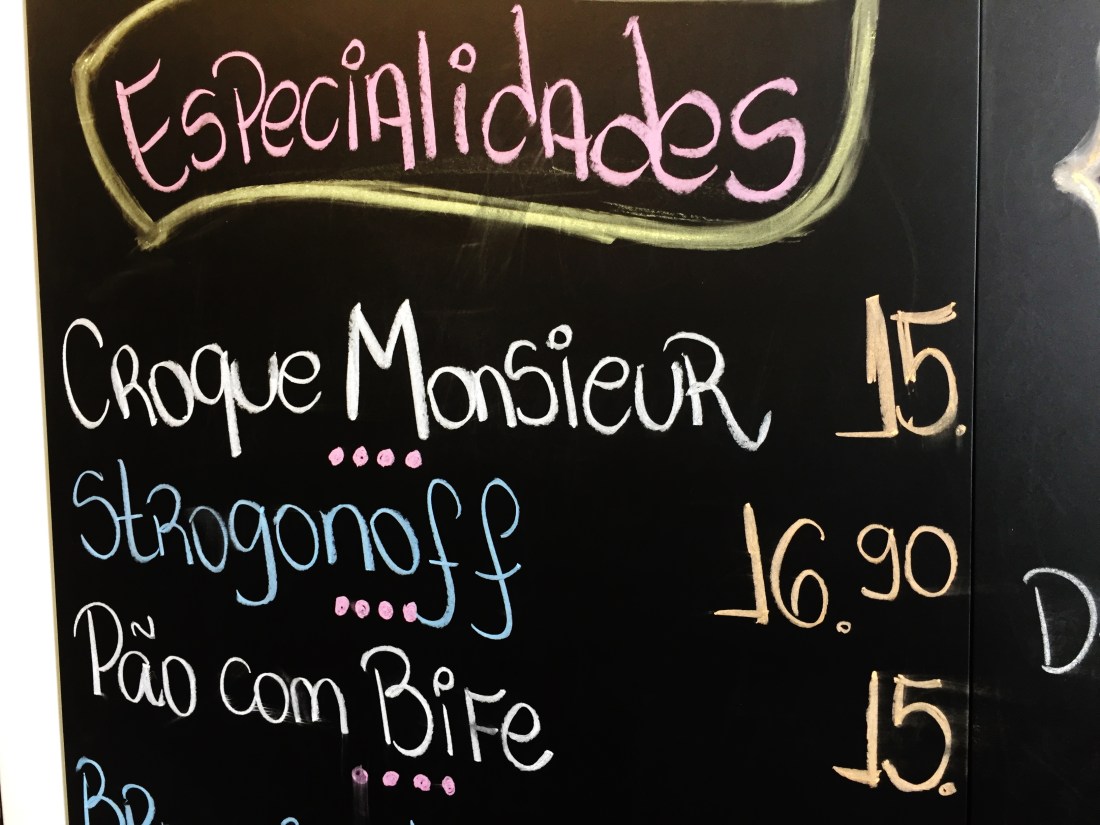 Especialidades
Croque Monsieur 15.
Strogonoff 16.90
Pão com Bife 15.